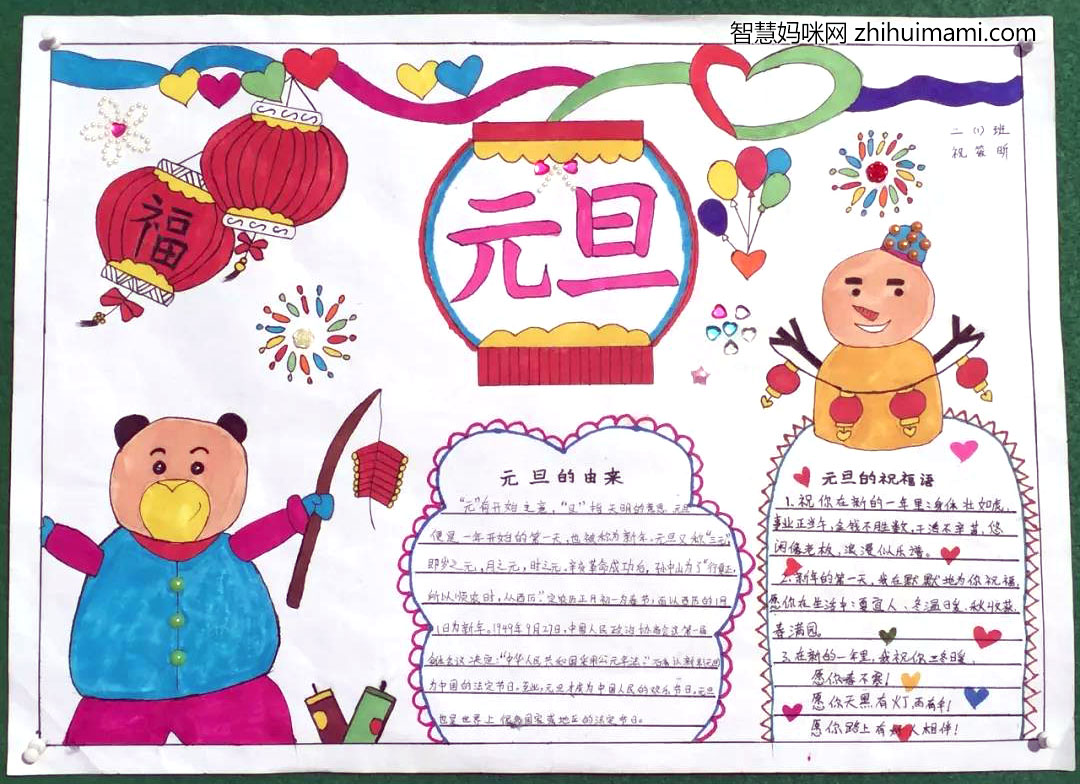 智慧妈咪网 zhihuimami.com
二 (1) 班
祝 昕
福
元旦
元旦的由来
"元"有开始之意，"旦"指天明的意思。元旦
便是一年开始的第一天，也被称为新年。元旦又称"三元"，
即岁之元，月之元，时之元。辛亥革命成功后，孙中山为了"行夏正，
所以顺农时，从西历"，定农历正月初一为春节，而以西历的1月
1日为新年。1949年9月27日，中国人民政治协商会议第一届
会议决定："中华人民共和国采用公元年法。"
为中国的法定节日。至此，元旦才成为中国人民的欢乐节日。元旦
也是世界上 国家或地区的法定节日。
元旦的祝福语
1、祝你在新的一年里：身体壮如虎，
事业正当午，金钱不胜数，干活不辛苦，悠
闲像老板，浪漫似乐谱。
2、新年的第一天，我在默默地为你祝福，
愿你在生活中：夏宜人、冬温日暖、秋收获、
春满园。
3、在新的一年里，我祝你三冬暖，
愿你春不寒！
愿你天黑有灯，雨有伞！
愿你路上有 人相伴！